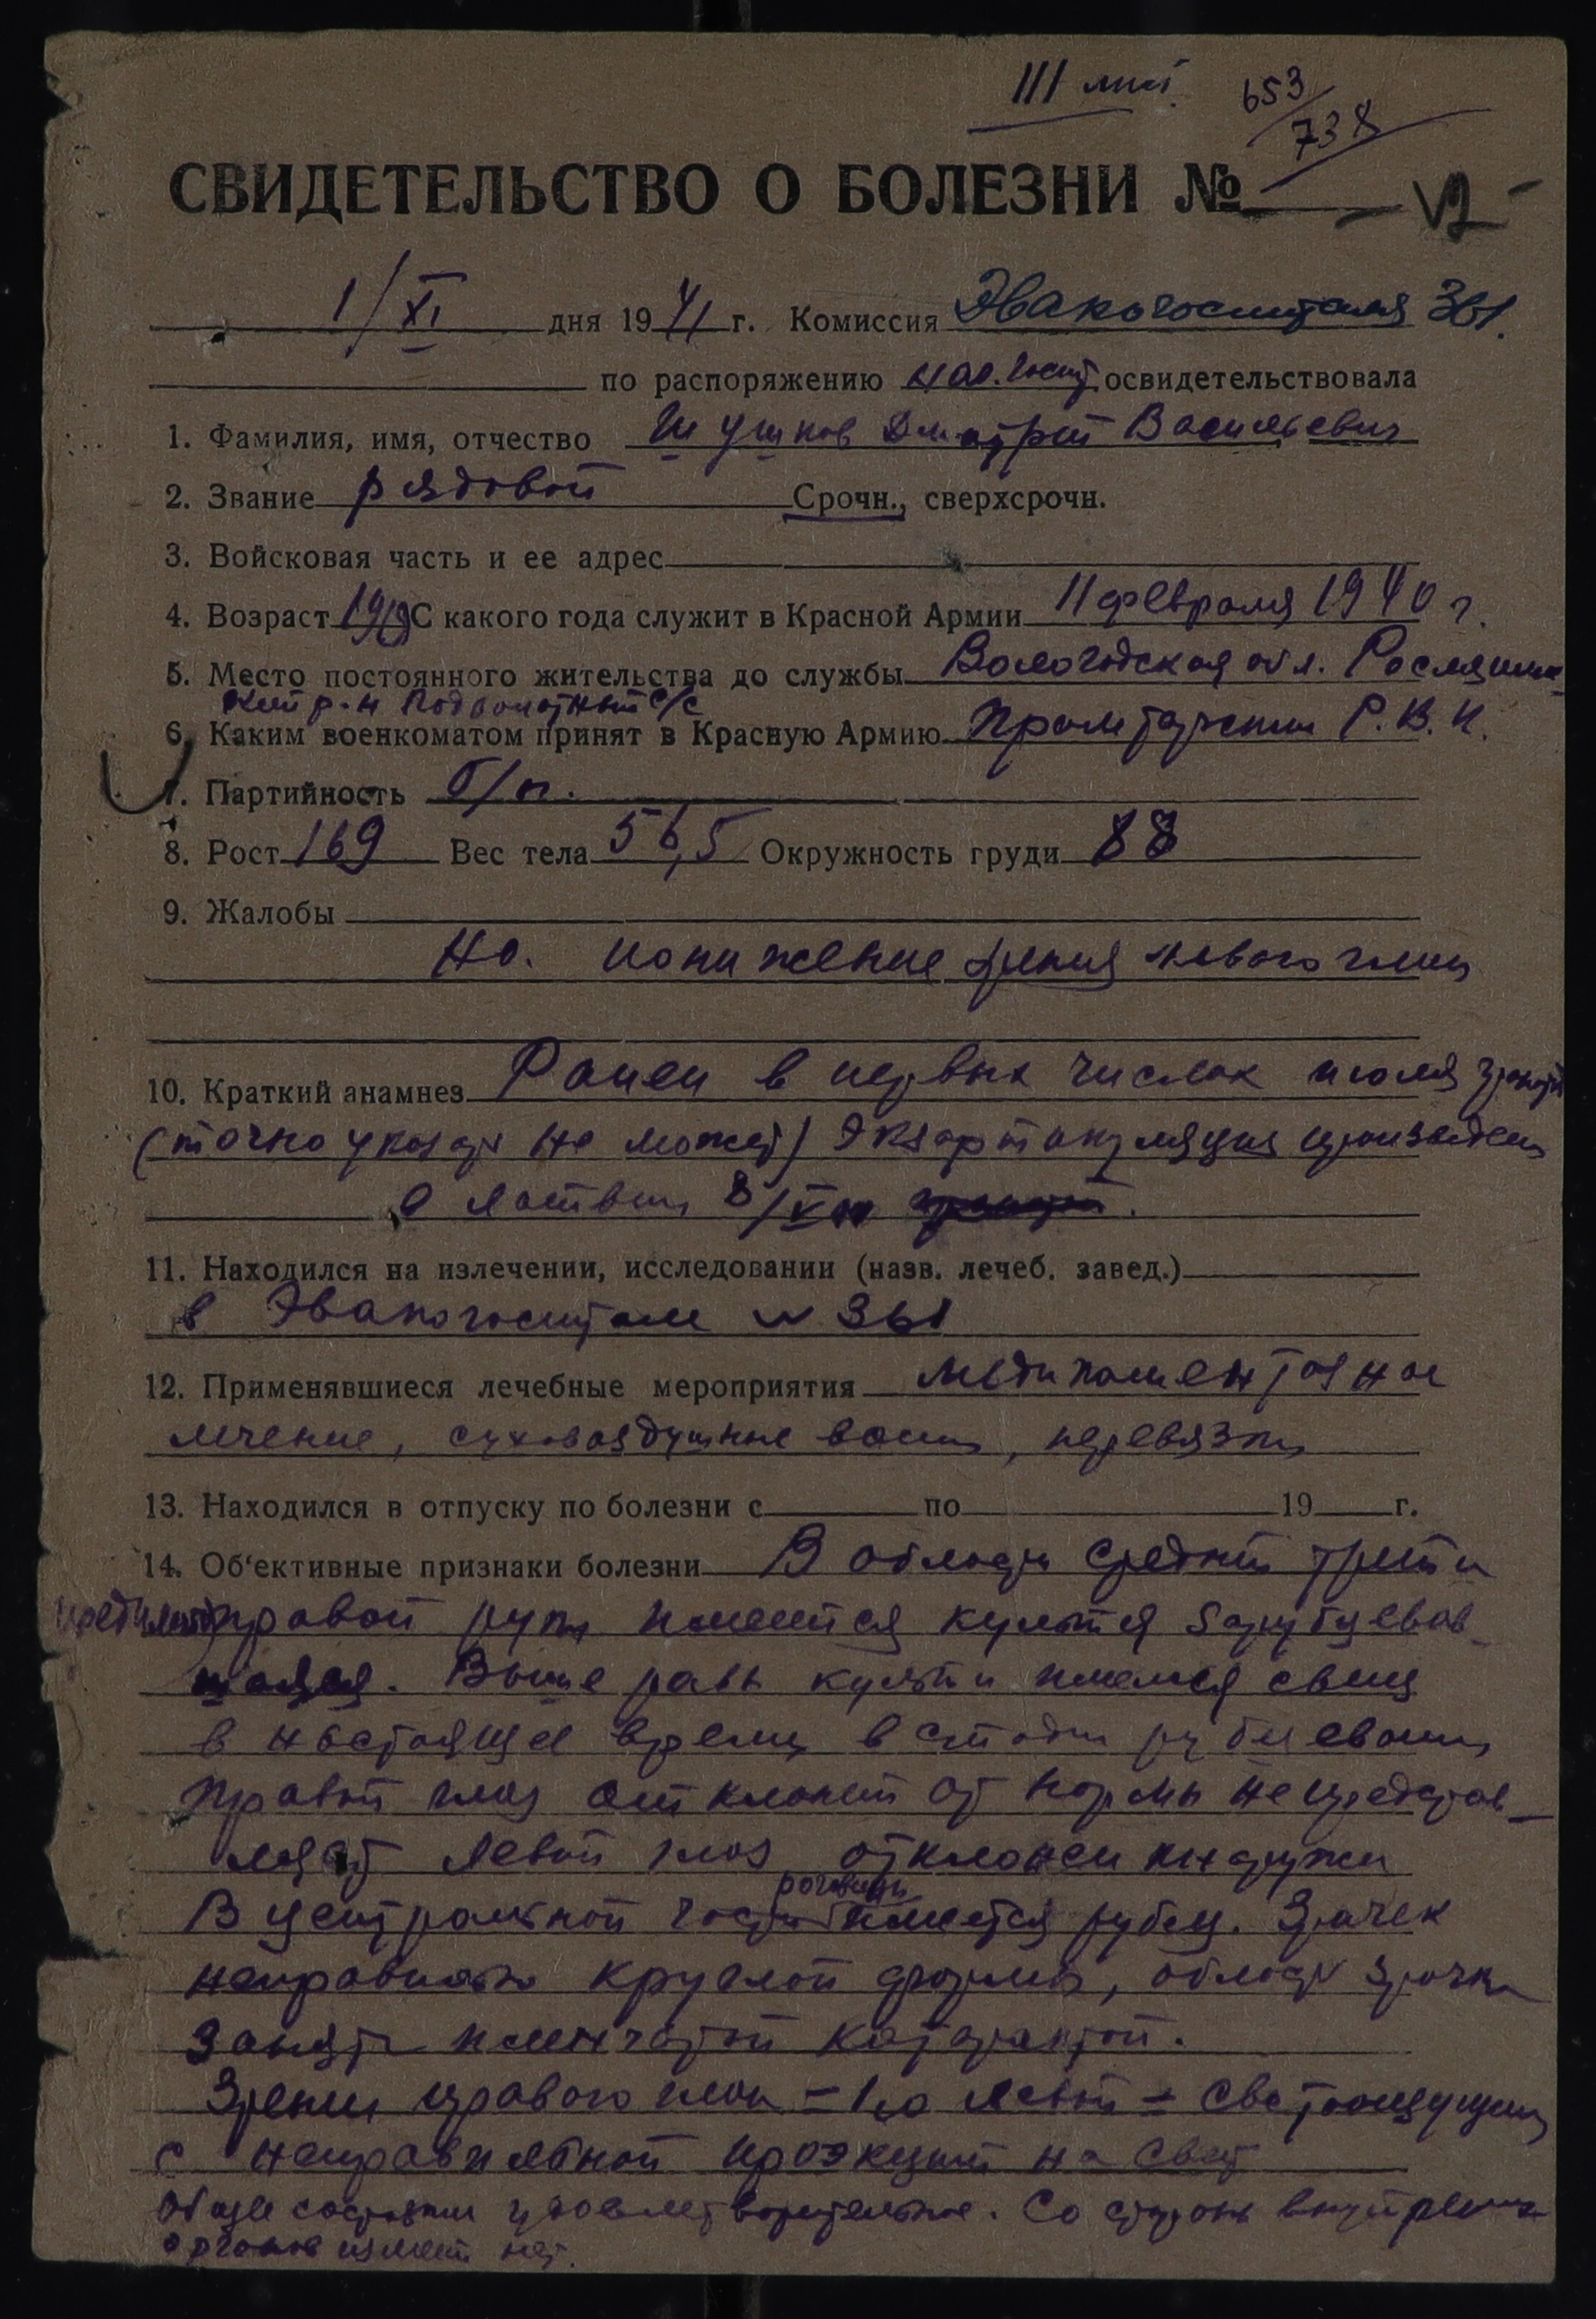 III лист 653/738
СВИДЕТЕЛЬСТВО О БОЛЕЗНИ №
1/XI дня 1941 г. Комиссия Эвакогоспиталя 361.
по распоряжению нач. госп. освидетельствовала
1. Фамилия, имя, отчество Шушков Дмитрий Васильевич
2. Звание рядовой Срочн., сверхсрочн.
3. Войсковая часть и ее адрес
4. Возраст 1919 С какого года служит в Красной Армии 11 февраля 1940 г.
5. Место постоянного жительства до службы Вологодская обл. Рослятин-
ский р-н с/с
6. Каким военкоматом принят в Красную Армию Р.В.К.
7. Партийность б/п.
8. Рост 169 Вес тела 56,5 Окружность груди 88
9. Жалобы
На понижение зрения левого глаза
10. Краткий анамнез Ранен в первых числах июля
(точно указать не может) Экзартикуляция произведена
в Латвии 8/VII
11. Находился на излечении, исследовании (назв. лечеб. завед.)
в Эвакогоспитале № 361
12. Применявшиеся лечебные мероприятия медикаментозное
лечение, суховоздушные ванны, перевязки
13. Находился в отпуску по болезни с по 19 г.
14. Об'ективные признаки болезни В области средней трети
правой руки имеется культя зарубцевав-
шаяся. Выше культи имелся свищ
в настоящее время в стадии рубцевания
Правый глаз отклонений от нормы не представ-
ляет Левый глаз отклонен кнаружи
В центральной части роговицы имеется рубец. Зрачек
неправильно круглой формы, область зрачка
занята пленчатой катарактой.
Зрение правого глаза = 1,0 левый = светоощущение
с неправильной проэкцией на свет
Общее состояние удовлетворительное. Со стороны внутренних
органов измен. нет.